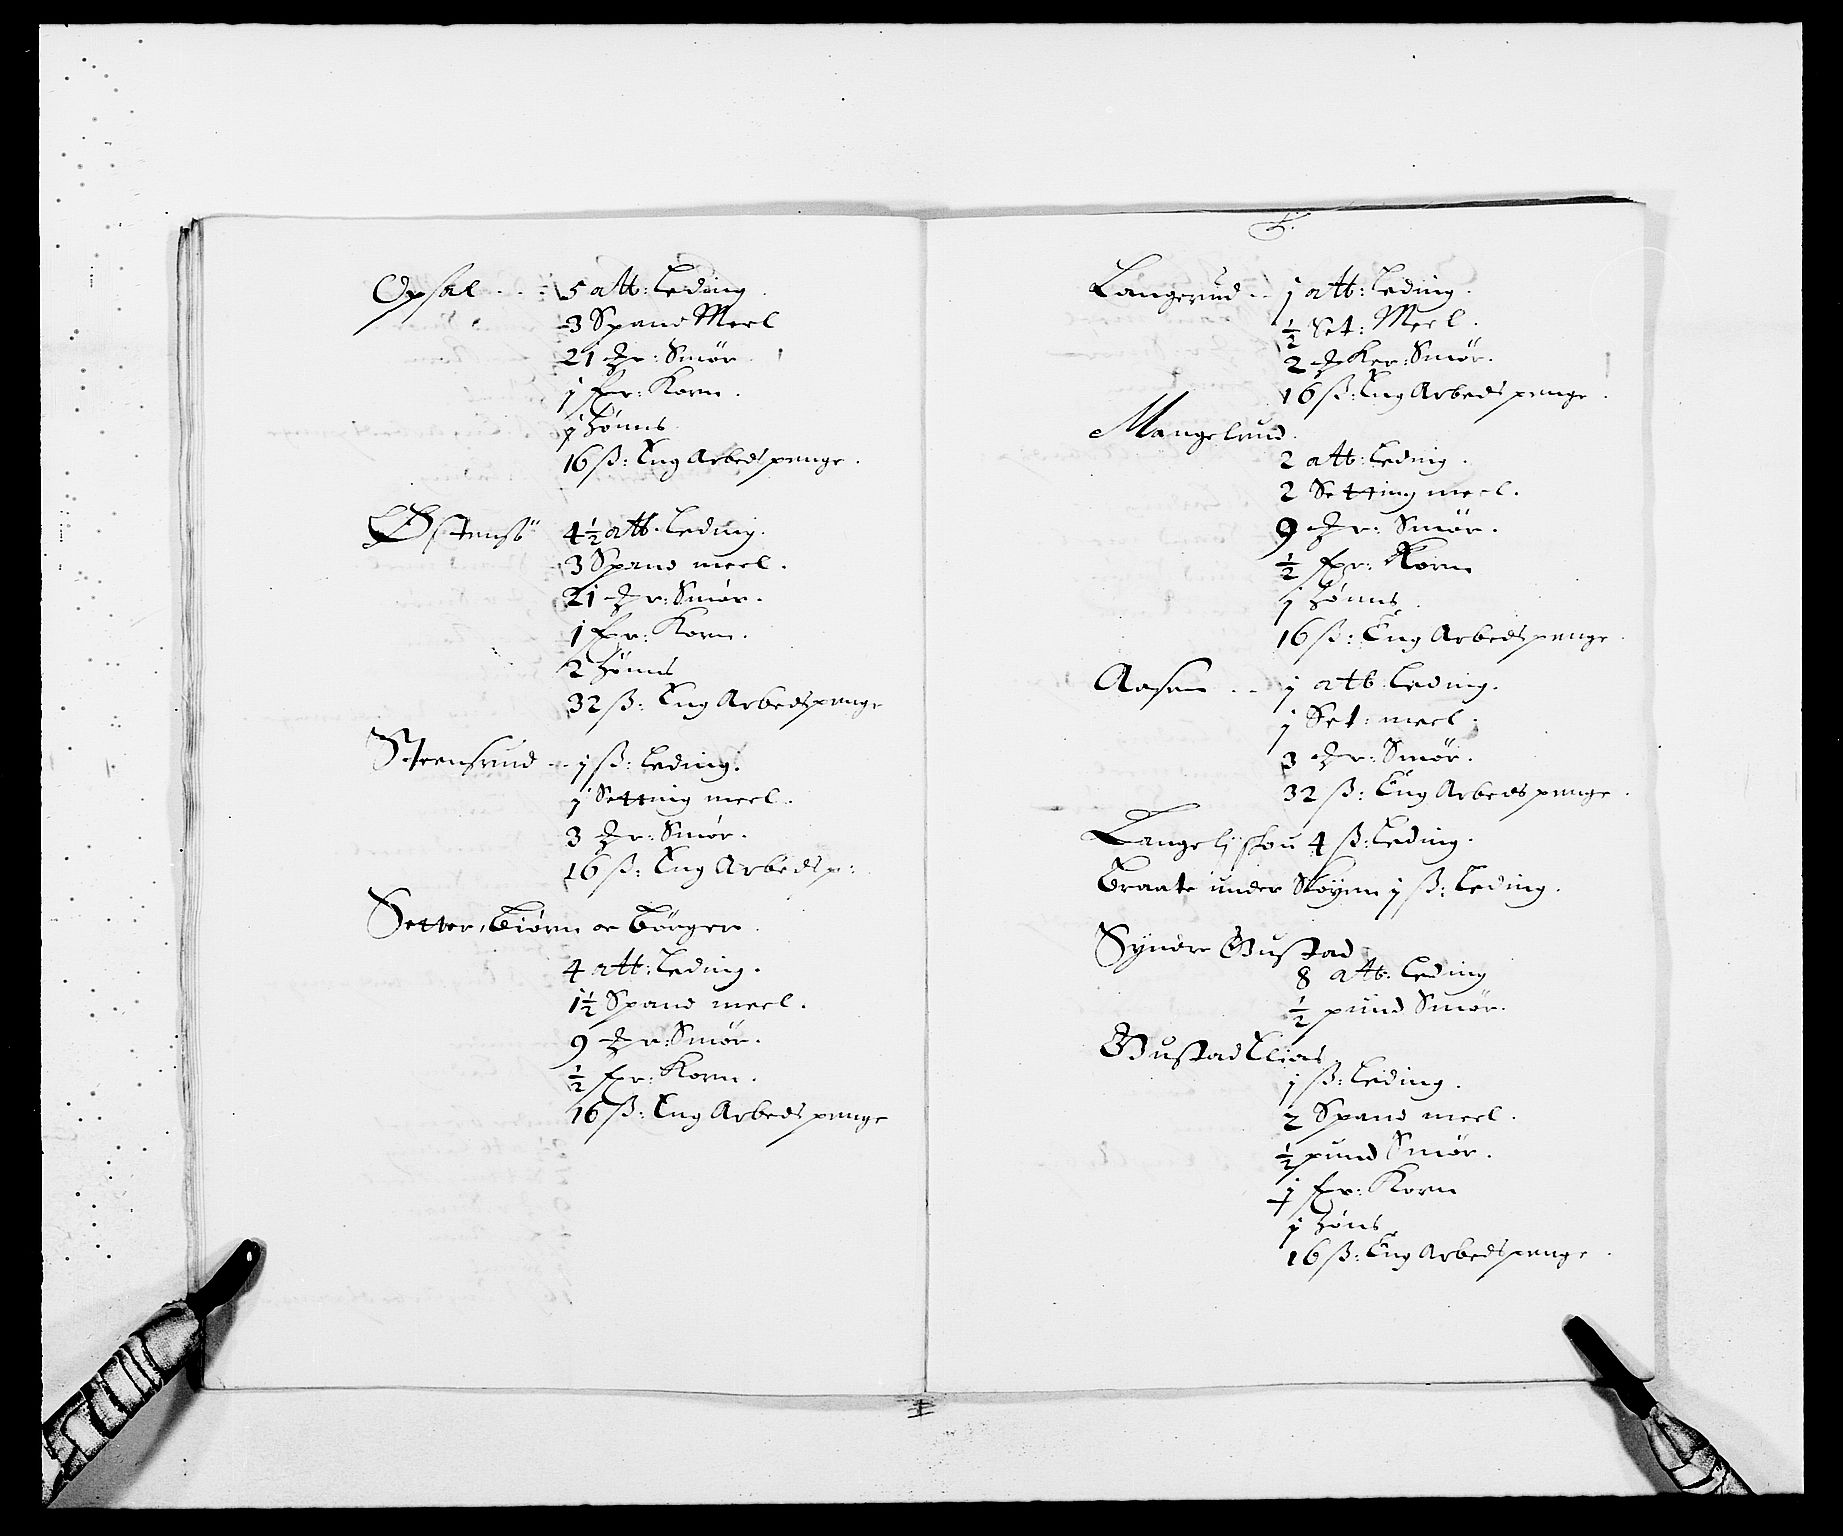 Opsal - - 5 att: Leding.
3 Spand Meel
21 Mr: Smør.
j fr: Korn.
j Hønns
16 ß: Eng Arbeds penge.
Østensö 4½ att. Leding.
3 Spand meel.
21 Mr: Smør.
1 fr: Korn.
2 Hønns
32 ß: Eng Arbedspenge
Steensrud - - j ß: Leding.
j Setting meel.
3 Mr: Smør.
16 ß: Eng Arbedsp:
Setter, Biørn oc Børger.
4 att: Leding.
1½ Spand meel.
9 Mr: Smør.
½ fr: Korn.
16 ß: Eng Arbeds penge
Langerud - - j att: Leding.
½ Set: Meel.
2 Mker: Smør.
16 ß: Eng Arbeds penge.
Mangelrud.
2 att: Leding.
2 Setting meel.
9 Mr: Smør.
½ fr: Korn
j Hønns.
16 ß: Eng Arbeds penge.
Aasen - - j att: Leding.
j Set: meel.
3 Mr: Smør.
32 ß: Eng Arbeds penge.
Langelj skou 4 ß: Leding.
Braate under Skøyen j ß: Leding.
Syndre Gustad
8 att: Leding
½ pund Smør.
Gustad Elias
j ß: Leding.
2 Spand meel.
½ pund Smør.
j fr: Korn
j Høns
16 ß: Eng Arbeds penge.